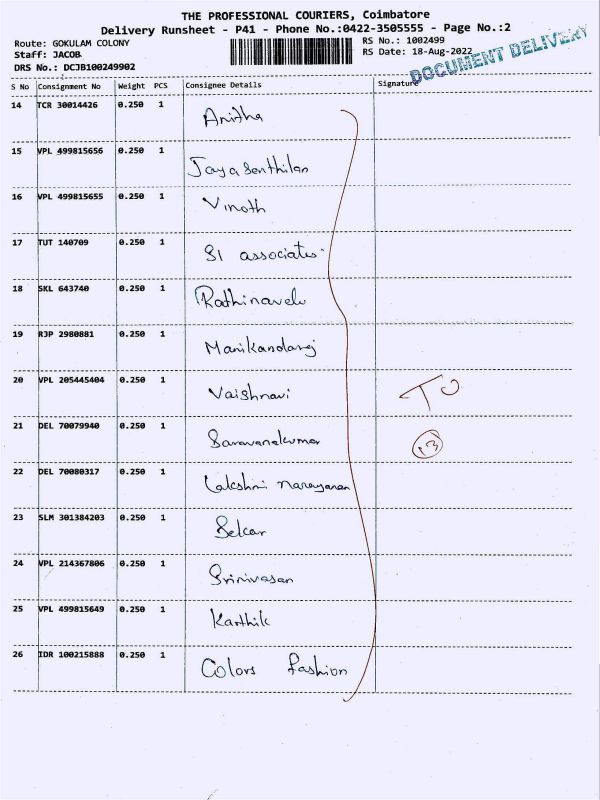 THE PROFESSIONAL COURIERS, Coimbatore
Delivery Runsheet - P41 - Phone No.:0422-3505555 - Page No.:2
Route: GOKULAM COLONY
Staff: JACOB
DRS No.: DCJB100249902
RS No.: 1002499
RS Date: 18-Aug-2022
DOCUMENT DELIVERY
S No Consignment No Weight PCS Consignee Details Signature
14 TCR 30014426 0.250 1 Anitha
15 VPL 499815656 0.250 1 Jayasenthilan
16 VPL 499815655 0.250 1 Vinoth
17 TUT 140709 0.250 1 SI associates
18 SKL 643740 0.250 1 Rathinavelu
19 RJP 2980881 0.250 1 Manikandaraj
20 VPL 205445404 0.250 1 Vaishnavi
TO
21 DEL 70079940 0.250 1 Saravanakumar
13
22 DEL 70080317 0.250 1 Lakshmi narayanan
23 SLM 301384203 0.250 1 Sekar
24 VPL 214367806 0.250 1 Srinivasan
25 VPL 499815649 0.250 1 Karthik
26 IDR 100215888 0.250 1 Colors fashion